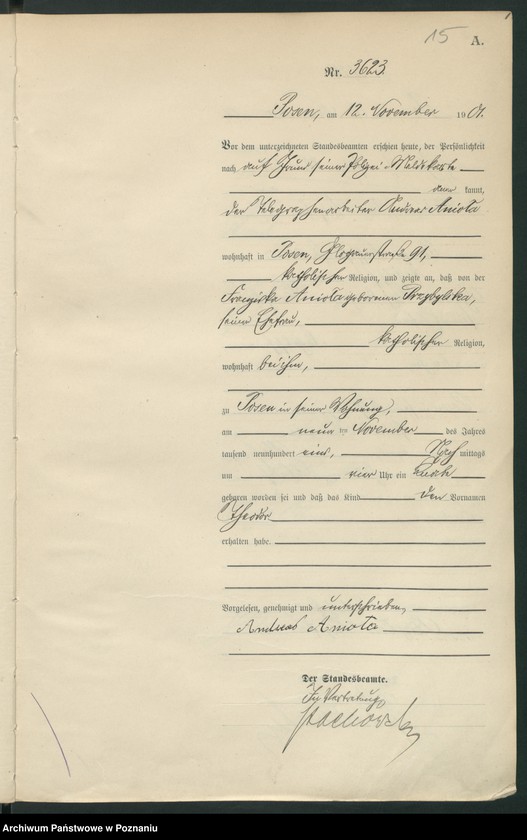 15 A.
Nr. 3623.
Posen, am 12. November 1901.
Vor dem unterzeichneten Standesbeamten erschien heute, der Persönlichkeit
nach auf Grund seiner Polizei-Meldekarte
kannt,
der Telegraphenarbeiter Andreas Aniola
wohnhaft in Posen, Glogauerstraße 91,
katholischer Religion, und zeigte an, daß von der
Franziska Aniola geborenen Przybylska,
seiner Ehefrau,
katholischer Religion,
wohnhaft bei ihm,
zu Posen in seiner Wohnung,
am neun ten November des Jahres
tausend neunhundert eins, Nachmittags
um vier Uhr ein Knabe
geboren worden sei und daß das Kind den Vornamen
Theodor
erhalten habe.
Vorgelesen, genehmigt und unterschrieben,
Andreas Aniola
Der Standesbeamte.
In Vertretung
Archiwum Państwowe w Poznaniu